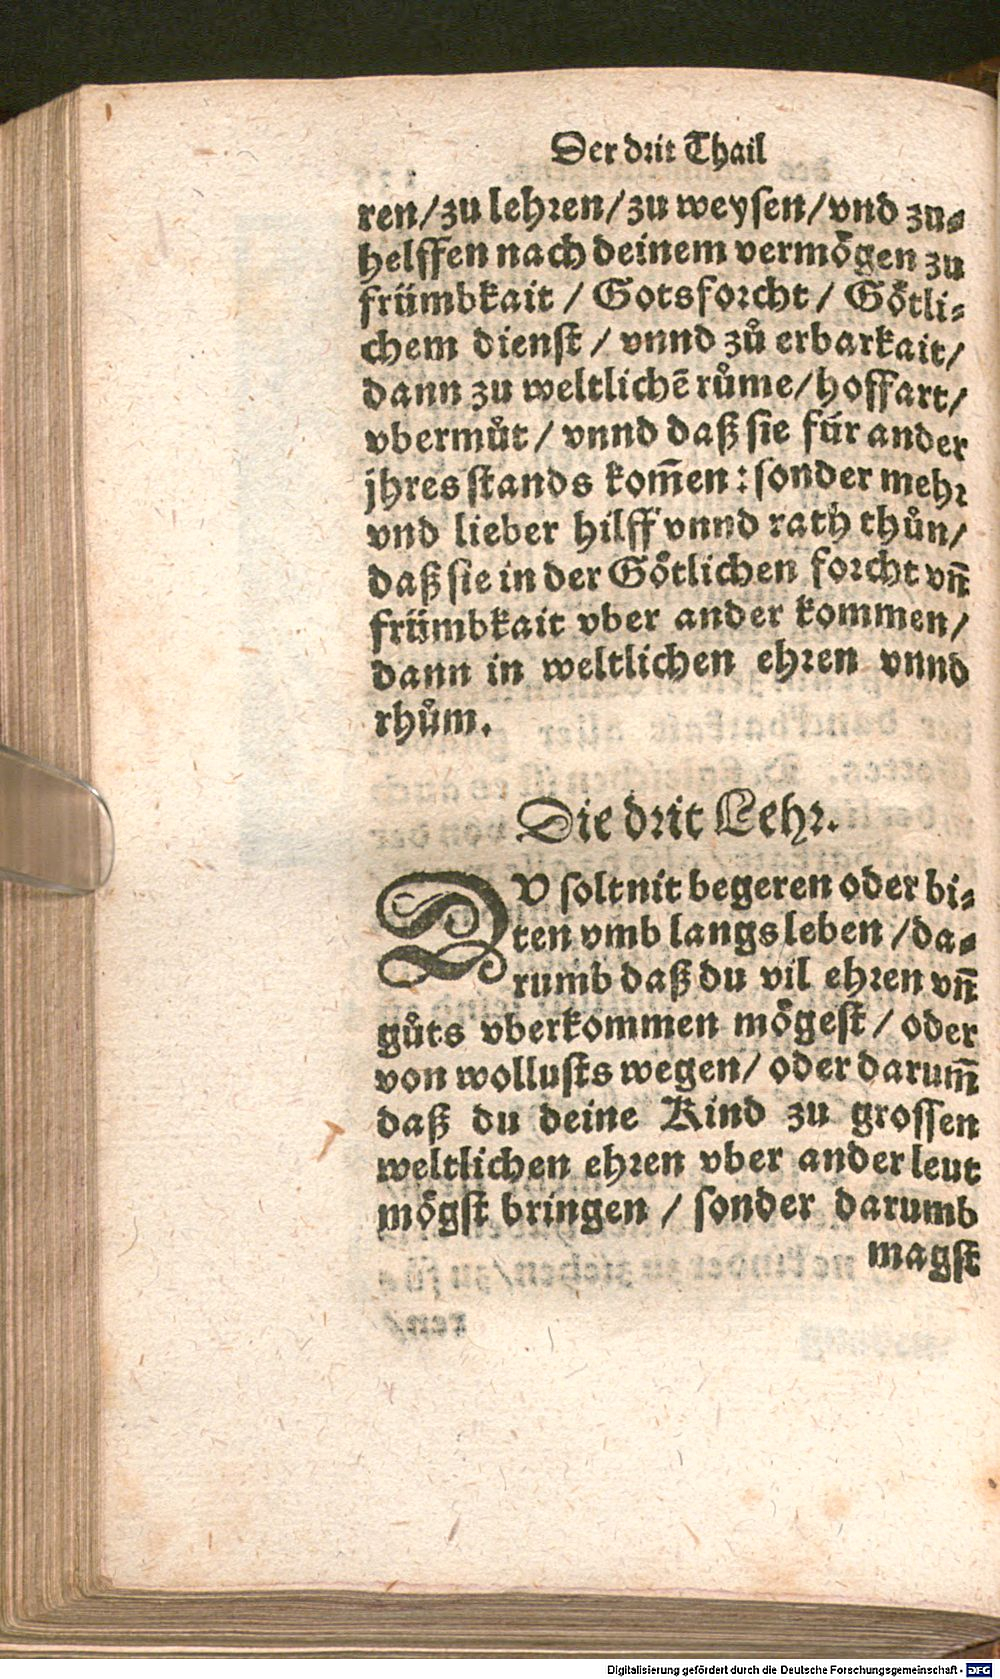 Der drit Thail
ren/zu lehren/zu weysen/vnd zu⸗
helffen nach deinem vermögen zu
frümbkait / Gotsforcht / Götli⸗
chem dienst / vnnd zů erbarkait/
dann zu weltlichē růme/hoffart/
vbermůt / vnnd daß sie für ander
jhres stands kom̄en : sonder mehr
vnd lieber hilff vnnd rath thůn/
daß sie in der Götlichen forcht vn̄
frümbkait vber ander kommen/
dann in weltlichen ehren vnnd
rhům.
Die drit Lehr.
DV solt nit begeren oder bi⸗
ten vmb langs leben /da⸗
rumb daß du vil ehren vn̄
gůts vberkommen mögest / oder
von wollusts wegen/ oder darum̄
daß du deine Kind zu grossen
weltlichen ehren vber ander leut
mögst bringen / sonder darumb
magst
Digitalisierung gefördert durch die Deutsche Forschungsgemeinschaft - DFG